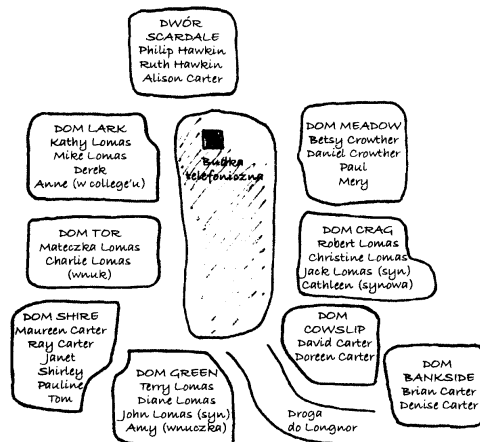 DWÓR
SCARDALE
Philip Hawkin
Ruth Hawkin
Alison Carter
DOM LARK
Kathy Lomas
Mike Lomas
Derek
Anne (w college'u)
Budka
telefoniczna
DOM MEADOW
Betsy Crowther
Daniel Crowther
Paul
Mery
DOM TOR
Mateczka Lomas
Charlie Lomas
(wnuk)
DOM CRAG
Robert Lomas
Christine Lomas
Jack Lomas (syn)
Cathleen (synowa)
DOM SHIRE
Maureen Carter
Ray Carter
Janet
Shirley
Pauline
Tom
DOM GREEN
Terry Lomas
Diane Lomas
John Lomas (syn)
Amy (wnuczka)
DOM
COWSLIP
David Carter
Doreen Carter
DOM
BANKSIDE
Brian Carter
Denise Carter
Droga
do Longnor